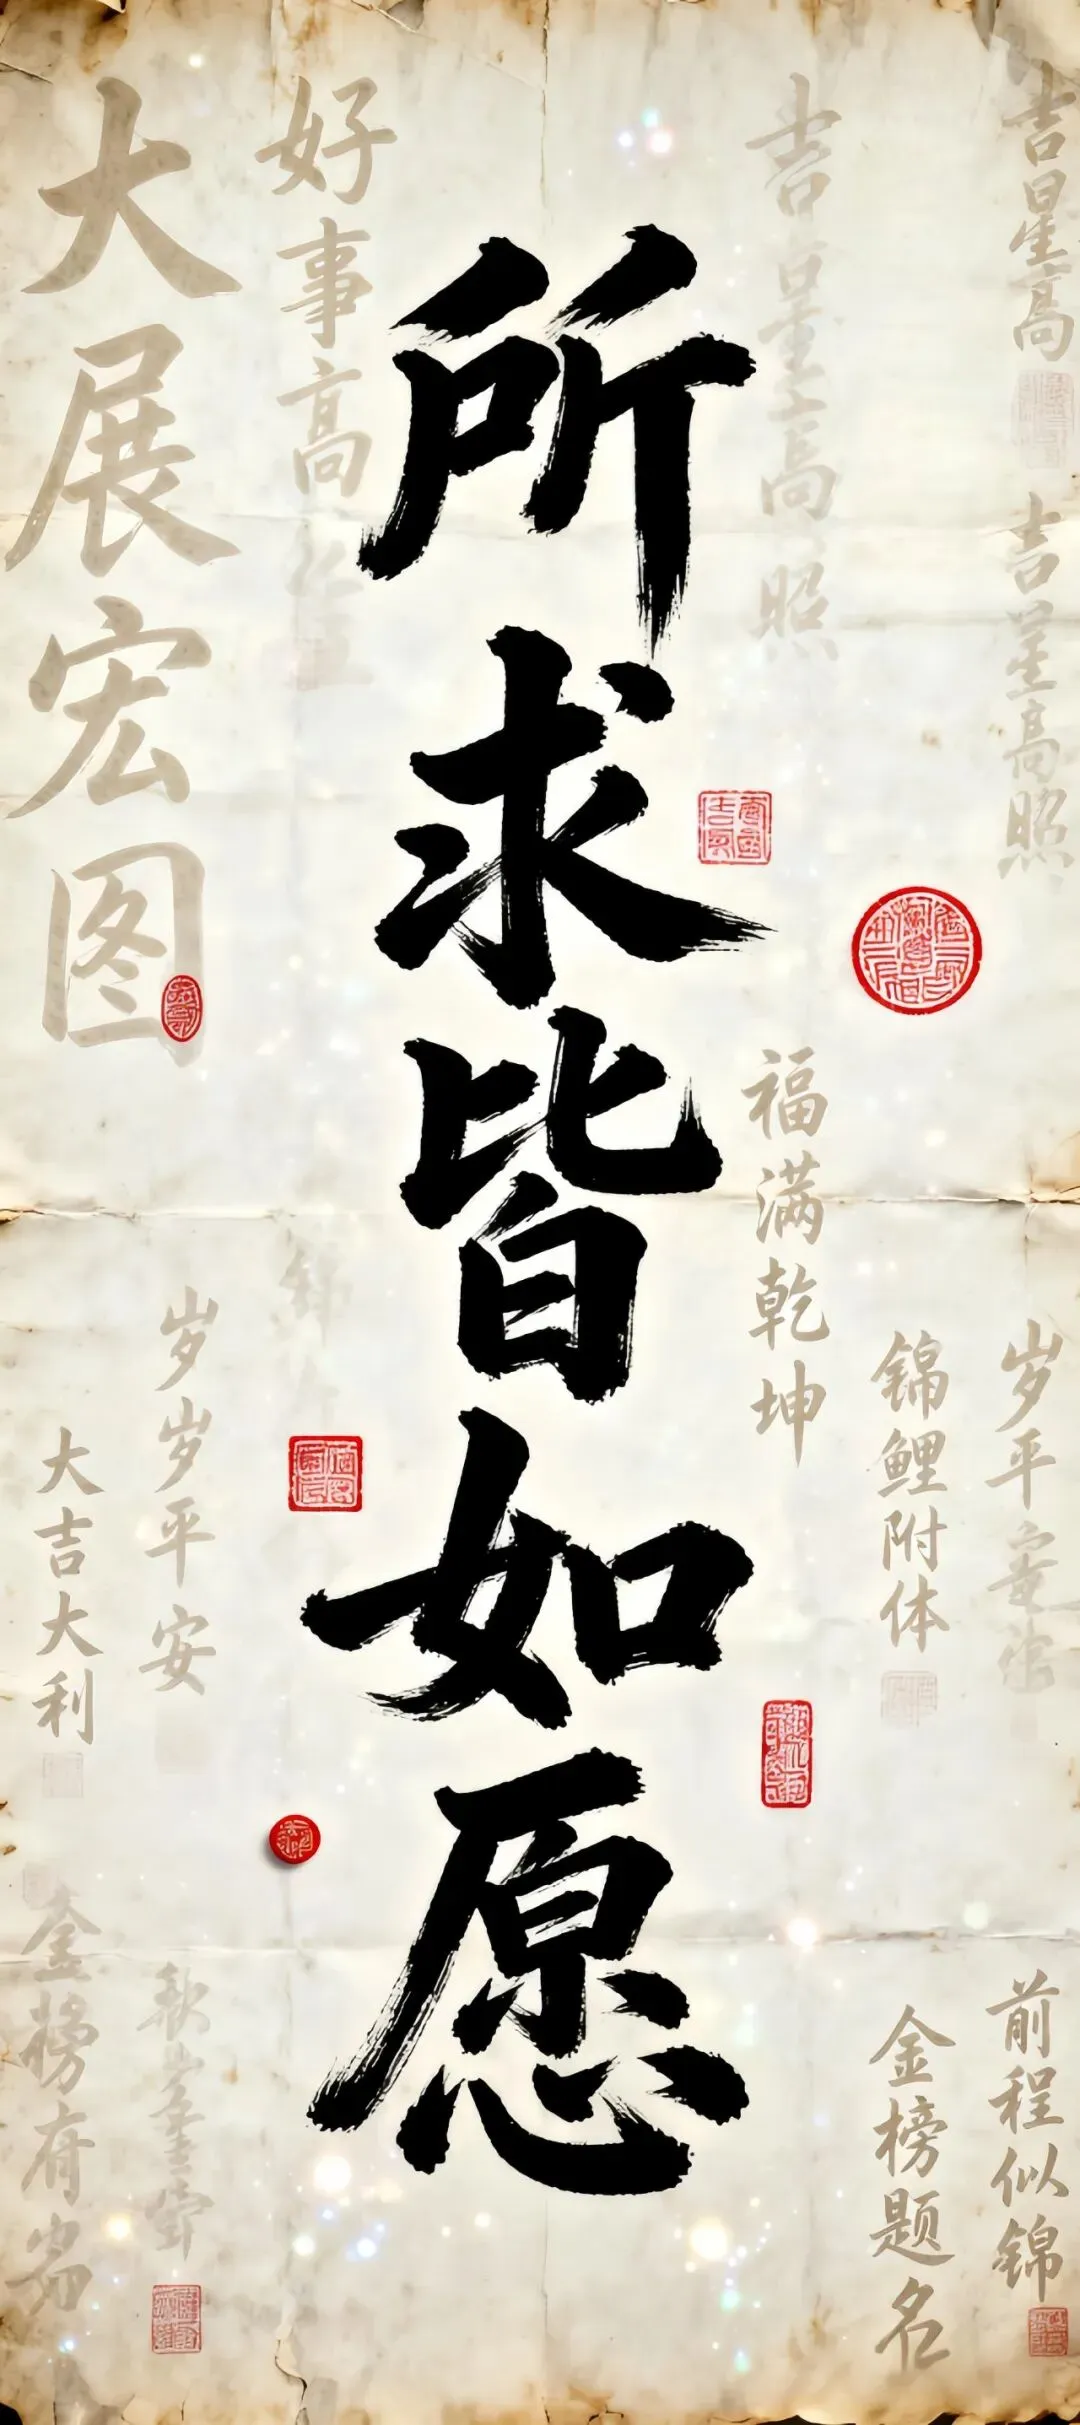 所求皆如愿
大展宏图
好事高
吉星高照
吉星高
吉星高照
福满乾坤
锦鲤附体
岁平
岁岁平安
大吉大利
前程似锦
金榜题名